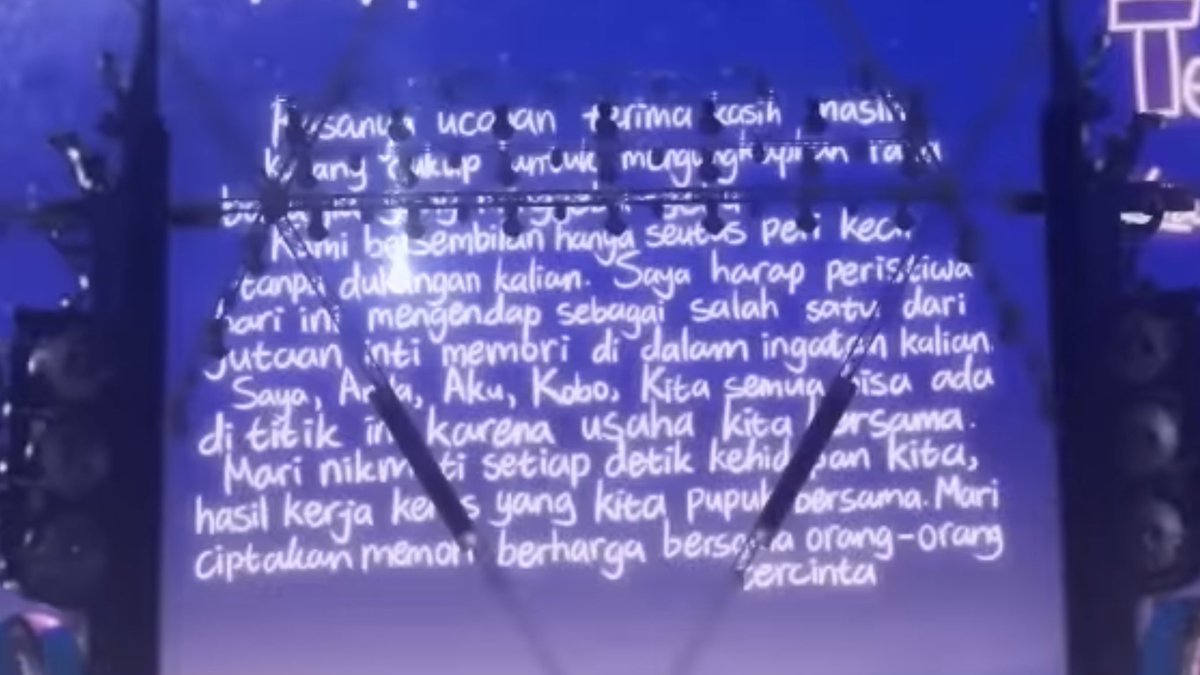 Rasanya ucapan terima kasih masih
kurang cukup untuk mengungkapkan rasa
Kami bersembilan hanya seutas peri kecil
tanpa dukungan kalian. Saya harap peristiwa
hari ini mengendap sebagai salah satu dari
jutaan inti memori di dalam ingatan kalian.
Saya, Anda, Aku, Kobo, Kita semua bisa ada
di titik ini karena usaha kita bersama.
Mari nikmati setiap detik kehidupan kita,
hasil kerja keras yang kita pupuk bersama. Mari
ciptakan memori berharga bersama orang-orang
tercinta
Te